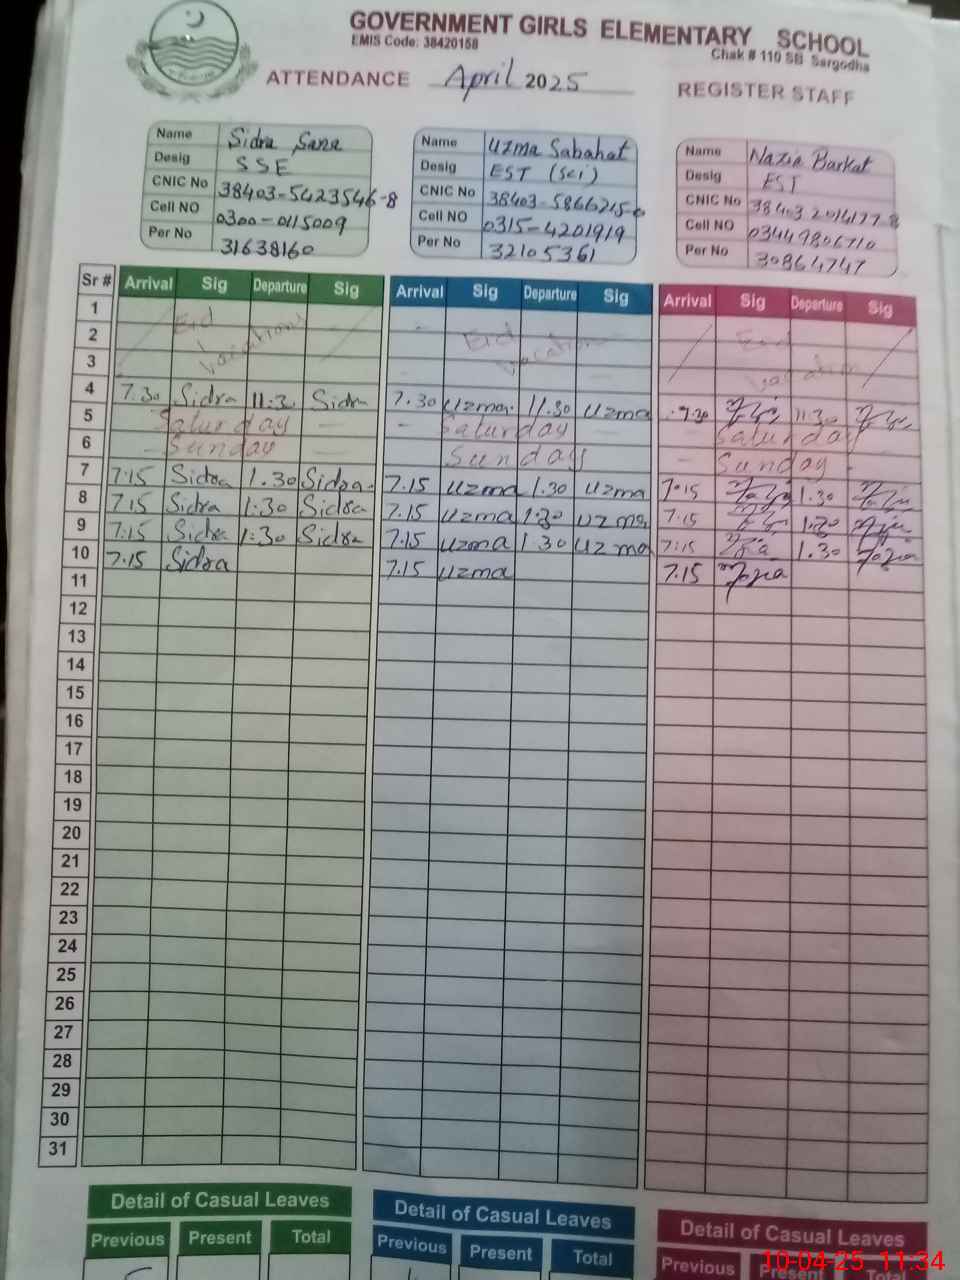 GOVERNMENT GIRLS ELEMENTARY SCHOOL
EMIS Code: 38420158
Chak # 110 SB Sargodha
ATTENDANCE April 2025 REGISTER STAFF
Name Sidra Sana
Desig SSE
CNIC No 38403-5423546-8
Cell NO 0300-0115009
Per No 31638160
Name Uzma Sabahat
Desig EST (Sci)
CNIC No 38403-5866215-0
Cell NO 0315-4201919
Per No 32105361
Name Nazia Barkat
Desig EST
CNIC No 38403 2014177-8
Cell NO 03449806710
Per No 30864747
Sr # Arrival Sig Departure Sig Arrival Sig Departure Sig Arrival Sig Departure Sig
1 Eid Eid Eid
2 Vacations Vacation Vacation
3
4 7.30 Sidra 11:30 Sidra 7.30 Uzma 11.30 Uzma 7.30 11:30
5 Saturday Saturday Saturday
6 Sunday Sunday Sunday
7 7.15 Sidra 1.30 Sidra 7.15 Uzma 1.30 Uzma 7.15 1.30
8 7.15 Sidra 1:30 Sidra 7.15 Uzma 1.30 Uzma 7.15 1.30
9 7.15 Sidra 1:30 Sidra 7.15 Uzma 1.30 Uzma 7:15 1.30
10 7.15 Sidra 7.15 Uzma 7.15
11
12
13
14
15
16
17
18
19
20
21
22
23
24
25
26
27
28
29
30
31
Detail of Casual Leaves Detail of Casual Leaves Detail of Casual Leaves
Previous Present Total Previous Present Total Previous Present Total
10-04-25 11:34